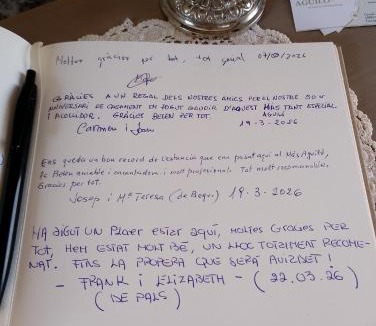 AGUILÓ
Moltes gràcies per tot, tot genial 07/03/2026
GRÀCIES A UN REGAL DELS NOSTRES AMICS PER EL NOSTRE 50 È
ANIVERSARI DE CASAMENT EM POGUT GAUDIR D'AQUEST MAS TANT ESPECIAL
I ACOLLIDOR. GRÀCIES BELEN PER TOT. AGUILÓ
Carmen i Joan 19-3-2026
Ens queda un bon record de l'estancia que em passat aquí al Mas Aguiló,
la Belen amable i encantadora i molt professional. Tot molt recomanable.
Gracias per tot.
Josep i Mª Teresa (de Begur) 19.3.2026
HA SIGUT UN PLAER ESTAR AQUÍ, MOLTES GRACIES PER
TOT, HEM ESTAT MOLT BÉ, UN LLOC TOTALMENT RECOME-
NAT. FINS LA PROPERA QUE SERÀ AVIADET!
- FRANK i ELIZABETH - (22.03.26)
(DE PALS)